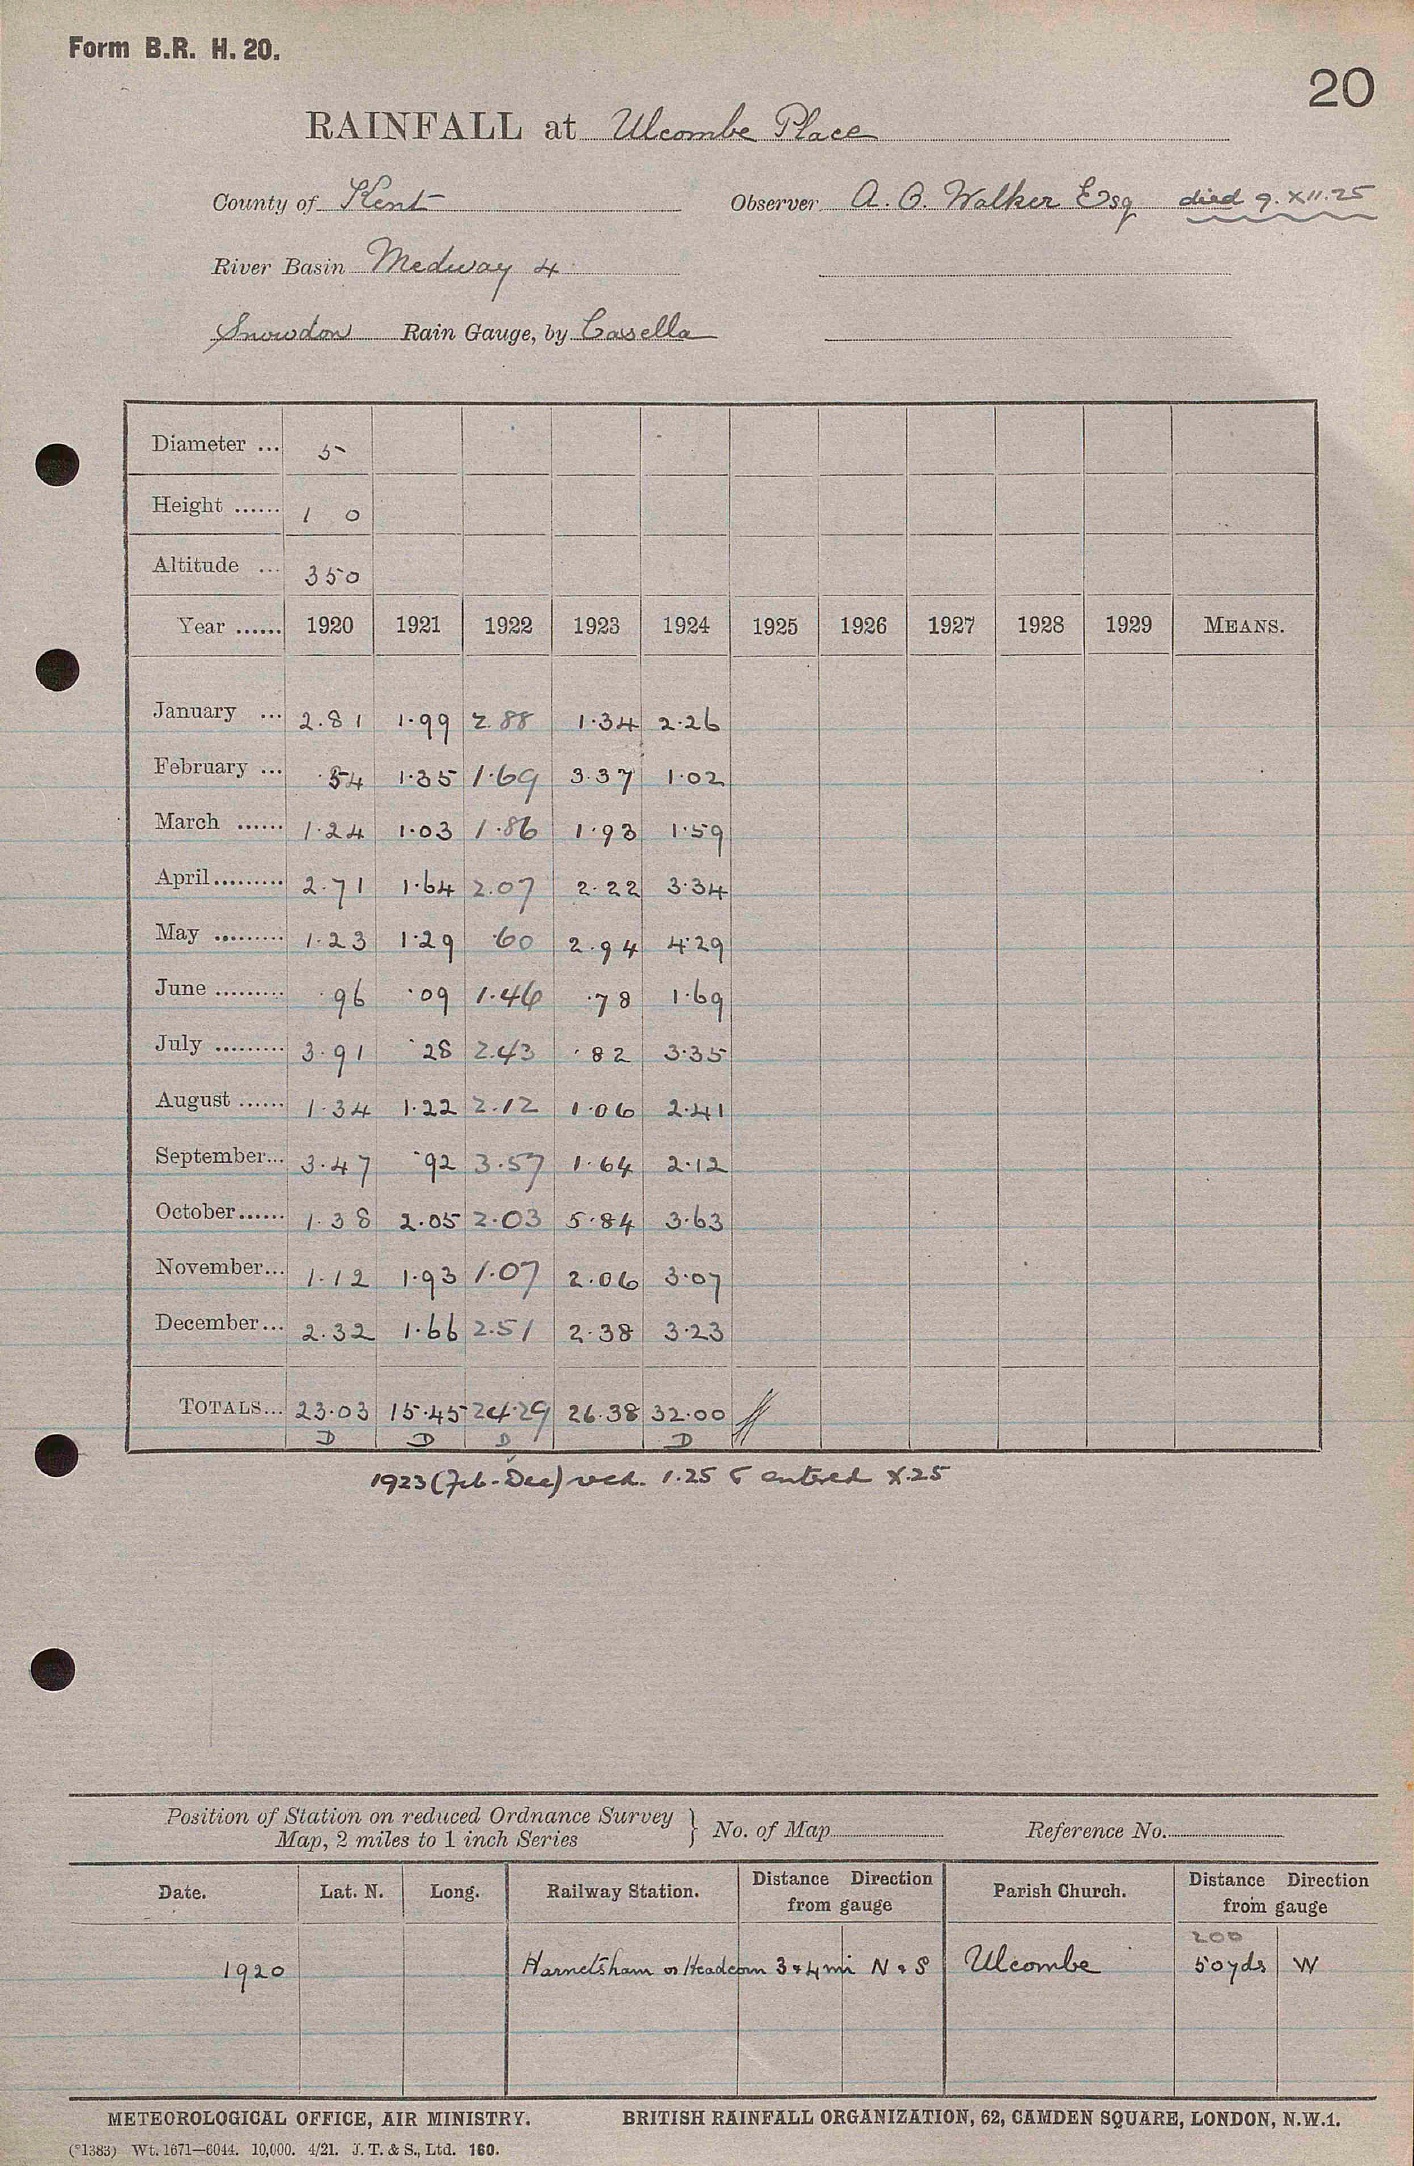 Form B.R. H. 20.
20
RAINFALL at Ulcombe Place
County of Kent Observer A. O. Walker Esq died 9. XII. 25
River Basin Medway 4
Snowdon Rain Gauge, by Casella
Diameter ... 5
Height ...... 1 0
Altitude ... 350
Year ...... 1920 1921 1922 1923 1924 1925 1926 1927 1928 1929 MEANS.
January ... 2.81 1.99 2.88 1.34 2.26
February ... .54 1.35 1.69 3.37 1.02
March ...... 1.24 1.03 1.86 1.93 1.59
April ......... 2.71 1.64 2.07 2.22 3.34
May ......... 1.23 1.29 .60 2.94 4.29
June ......... .96 .09 1.46 .78 1.69
July ......... 3.91 .28 2.43 .82 3.35
August ...... 1.34 1.22 2.12 1.06 2.41
September... 3.47 .92 3.57 1.64 2.12
October...... 1.38 2.05 2.03 5.84 3.63
November... 1.12 1.93 1.07 2.06 3.07
December... 2.32 1.66 2.51 2.38 3.23
TOTALS... 23.03 15.45 24.29 26.38 32.00
D D D D
1923 (Feb - Dec) recd. 1.25 & entered X.25
Position of Station on reduced Ordnance Survey Map, 2 miles to 1 inch Series } No. of Map Reference No.
Date. Lat. N. Long. Railway Station. Distance Direction from gauge Parish Church. Distance Direction from gauge
200
1920 Harrietsham or Headcorn 3 & 4 mi N & S Ulcombe 50 yds W
METEOROLOGICAL OFFICE, AIR MINISTRY. BRITISH RAINFALL ORGANIZATION, 62, CAMDEN SQUARE, LONDON, N.W.1.
(*1383) Wt. 1671—6044. 10,000. 4/21. J. T. & S., Ltd. 160.